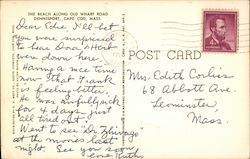 THE BEACH ALONG OLD WHARF ROAD
DENNISPORT, CAPE COD, MASS.
Dear Edie, I'll bet
you were surprised
to hear Dora & Herb
were down here.
Having a nice time
now that Frank
is feeling better.
He was awfully sick
for 4 days, just
all tired out.
Went to see "Dr Zhivago"
at the movies last
night. See you soon
Love Ruth
POST CARD
Mrs. Edith Corliss
68 Abbott Ave.
Leominster,
Mass.